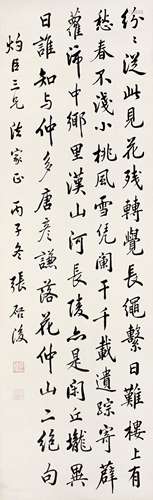 紛〻從此見花殘轉覺長繩繫日難樓上有
愁春不淺小桃風雪凭闌干千載遺踪寄薜
蘿沛中鄉里漢山河長陵亦是閒丘壠異
日誰知与仲多唐彥謙落花仲山二絕句
灼臣三兄法家正 丙子冬 張啟後